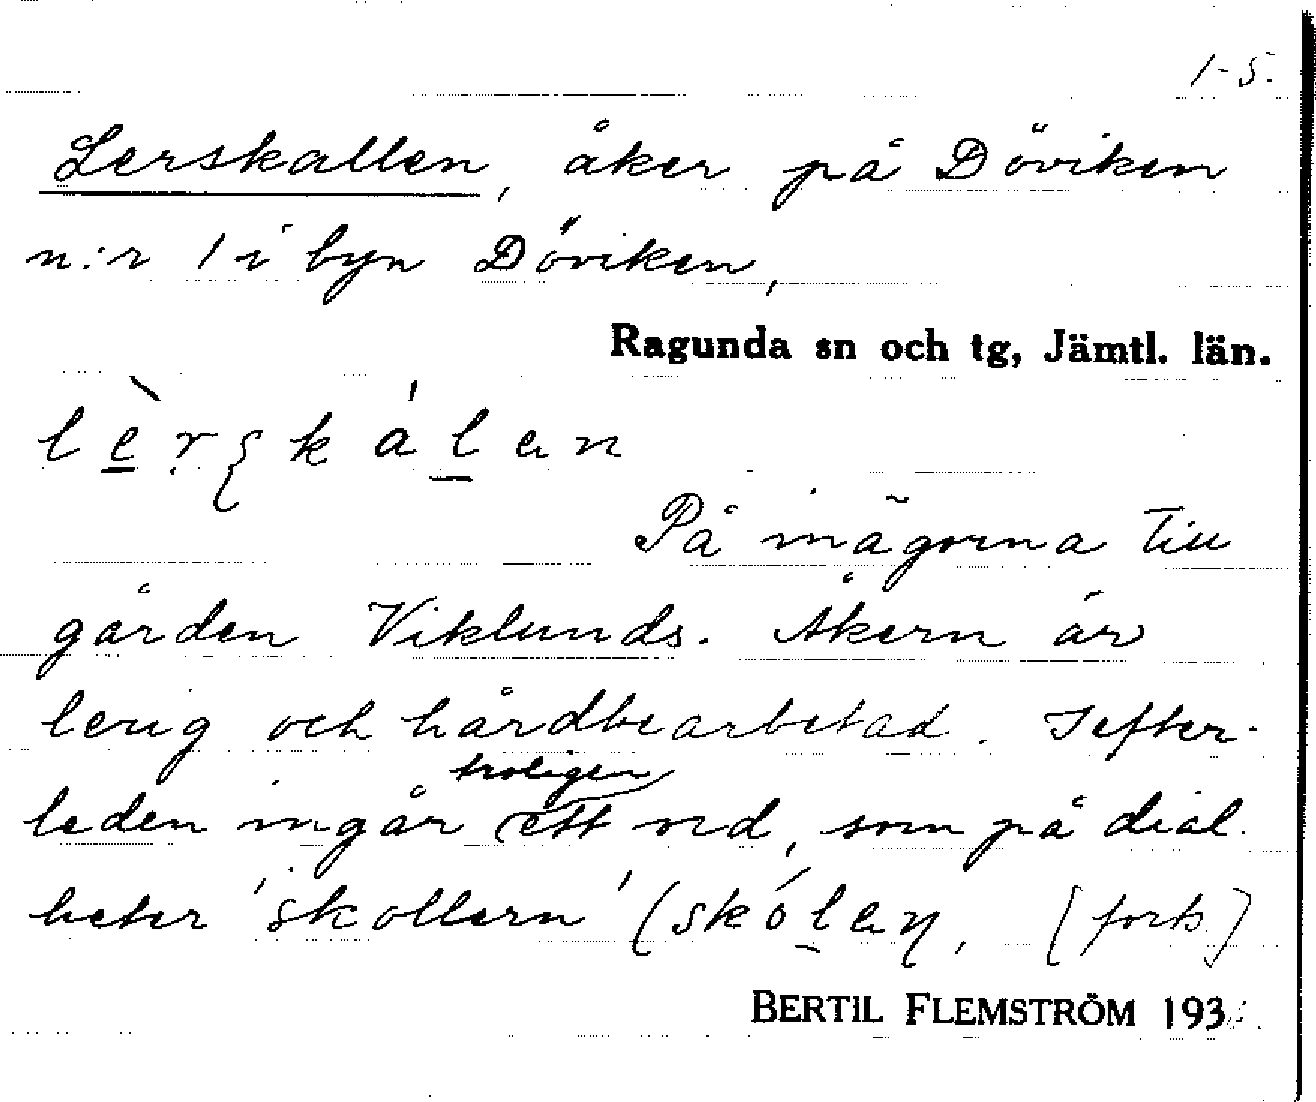 1-5.
Lerskallen, åker på Döviken
n:r 1 i byn Döviken,
Ragunda sn och tg, Jämtl. län.
lèrʂkálen
På inägorna till
gården Viklunds. Åkern är
lerig och hårdbearbetad. I efter-
troligen
leden ingår ett ord, som på dial.
heter 'skollern' (skólen, (forts)
BERTIL FLEMSTRÖM 193